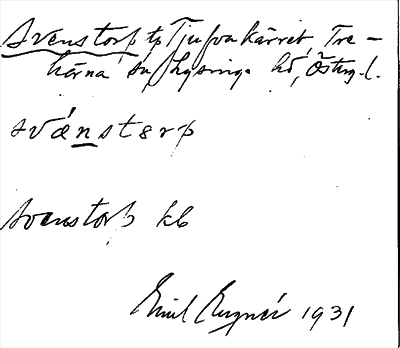 Svenstorp tp Tjufvakärret, Tre-
kärna su, Kysinge hd, Östergl.
svánstərp
Svenstorp kb
Emil Eugnér 1931